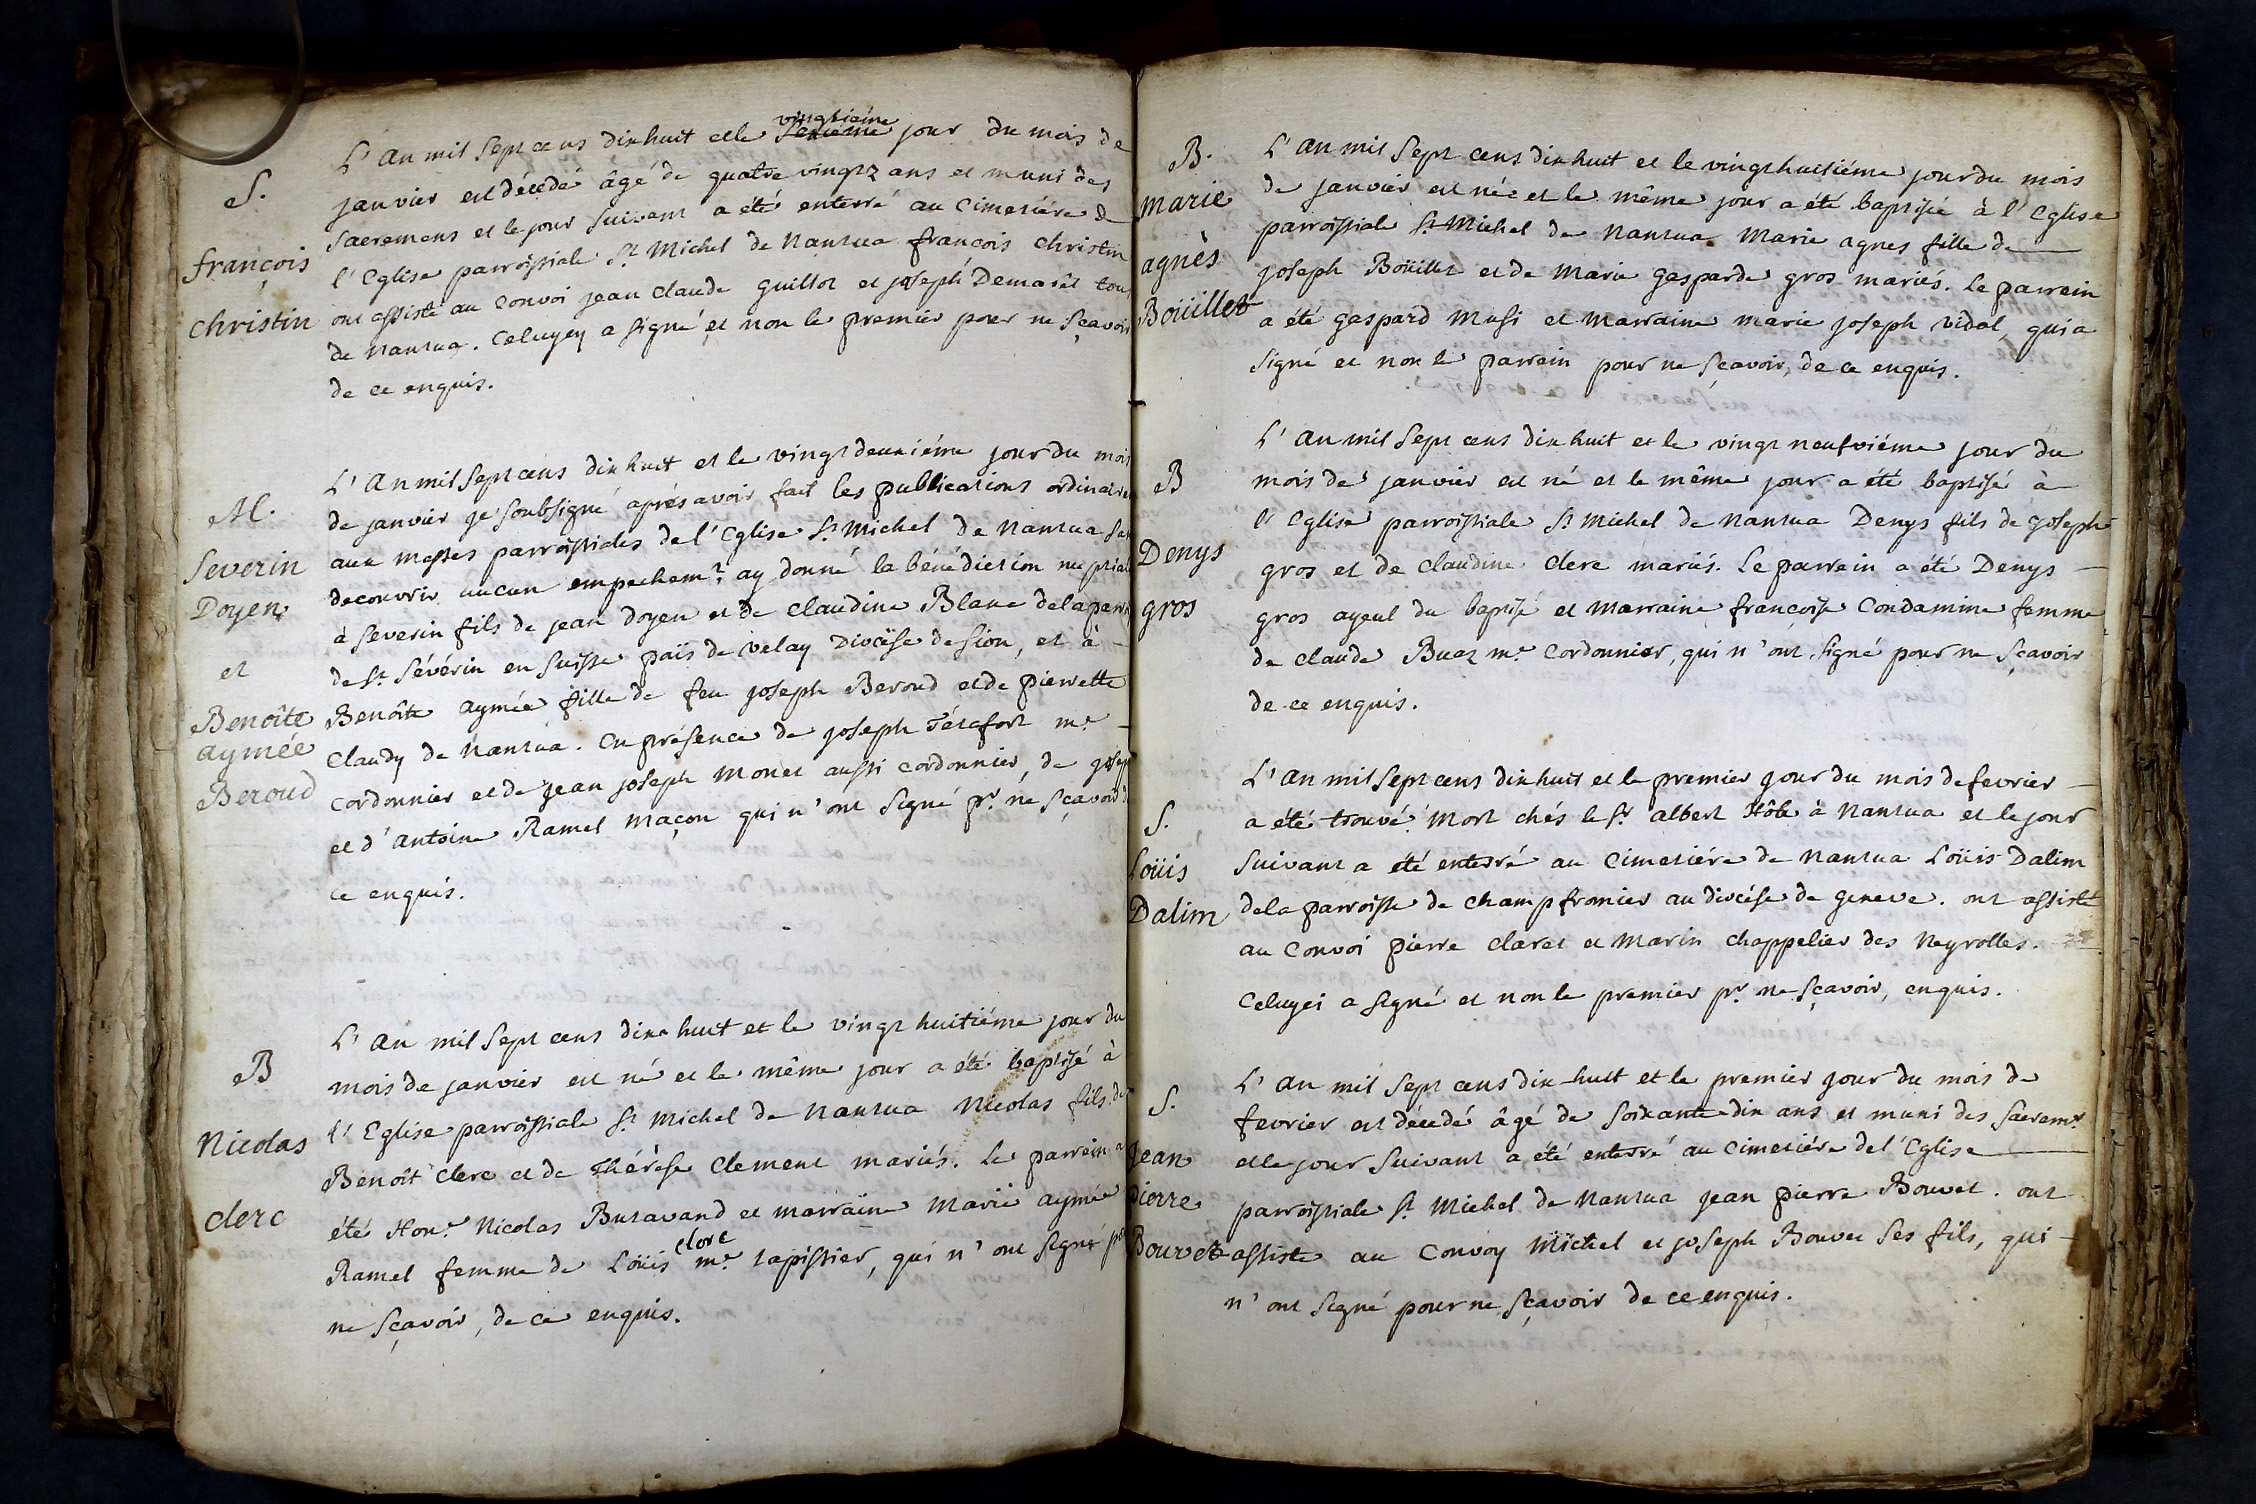 S.
françois
christin
L'an mil sept cens dixhuit et le vingtiéme jour du mois de
janvier est décédé âgé de quatre vingtz ans et muni des
sacremens et le jour suivant a été enterré au cimetiére de
l'Eglise parroissiale St Michel de Nantua françois christin
ont assisté au convoi jean claude guillot et joseph Demarêt tous
de Nantua. Celuyey a signé et non le premier pour ne sçavoir
de ce enquis.
M.
Severin
Doyen
et
Benoîte
aymée
Beroud
L'an mil sept cens dix huit et le vingt deuxiéme jour du mois
de janvier je soubsigné aprés avoir fait les publications ordinaires
aux messes parroissiales de l'Eglise St Michel de Nantua sans
decouvrir aucun empechemt ay donné la bénédiction nuptiale
à severin fils de jean doyen et de claudine Blanc de la parr
de St Sévérin en suisse païs de velay Diocése de Sion, et à
Benôite aymée fille de feu joseph Beroud et de pierrette
Claudy de Nantua. en présence de joseph Tétafort me
cordonnier et de jean joseph Monet aussi cordonnier, de joseph
et d'antoine Ramel maçon qui n'ont signé pr ne sçavoir de
ce enquis.
B
Nicolas
clerc
L'an mil sept cens dixe huit et le vingt huitiéme jour du
mois de janvier est né et le même jour a été baptisé à
l'Eglise parroissiale St Michel de Nantua Nicolas fils de
Benoît clerc et de Thérèse Clement mariés. Le parrein a
été Honr. Nicolas Butavand et marraine Marie aymée
Ramel femme de Loüis clerc me tapissier, qui n'ont signé pr
ne sçavoir, de ce enquis.
B.
marie
agnès
Boüillet
L'an mil sept cens dixhuit et le vingt huitiéme jour du mois
de janvier est née et le même jour a été baptisée à l'Eglise
parroissiale St Michel de Nantua Marie agnes fille de
joseph Boüillet et de Marie gasparde gros mariés. Le parrein
a été gaspard Musi et marraine marie joseph vidal, qui a
signé et non le parrein pour ne sçavoir, de ce enquis.
B
Denys
gros
L'an mil sept cens dix huit et le vingt neufviéme jour du
mois de janvier est né et le même jour a été baptisé à
l'Eglise parroissiale St Michel de Nantua Denys fils de joseph
gros et de claudine clerc mariés. Le parrein a été Denys
gros ayeul du baptisé et marraine françoise Condamine femme
de claude Buaz me cordonnier, qui n'ont signé pour ne sçavoir
de ce enquis.
S.
Loüis
Dalim
L'an mil sept cens dixhuit et le premier jour du mois de fevrier
a été trouvé mort chés le Sr albert Hôte à Nantua et le jour
suivant a été enterré au cimetiére de Nantua Loüis Dalim
de la parroisse de champfromier au diocése de geneve. ont assisté
au convoi pierre claret et Marin chappelier des Neyrolles.
Celuyei a signé et non le premier pr ne sçavoir, enquis.
S.
Jean
pierre
Bouvet
L'an mil sept cens dix-huit et le premier jour du mois de
fevrier est décedé âgé de soixante dix ans et muni des sacremt
et le jour suivant a été enterré au cimetiére de l'Eglise
parroissiale St Michel de Nantua jean pierre Bouvet. ont
assisté au convoy Michel et joseph Bouvet ses fils, qui
n'ont signé pour ne sçavoir de ce enquis.